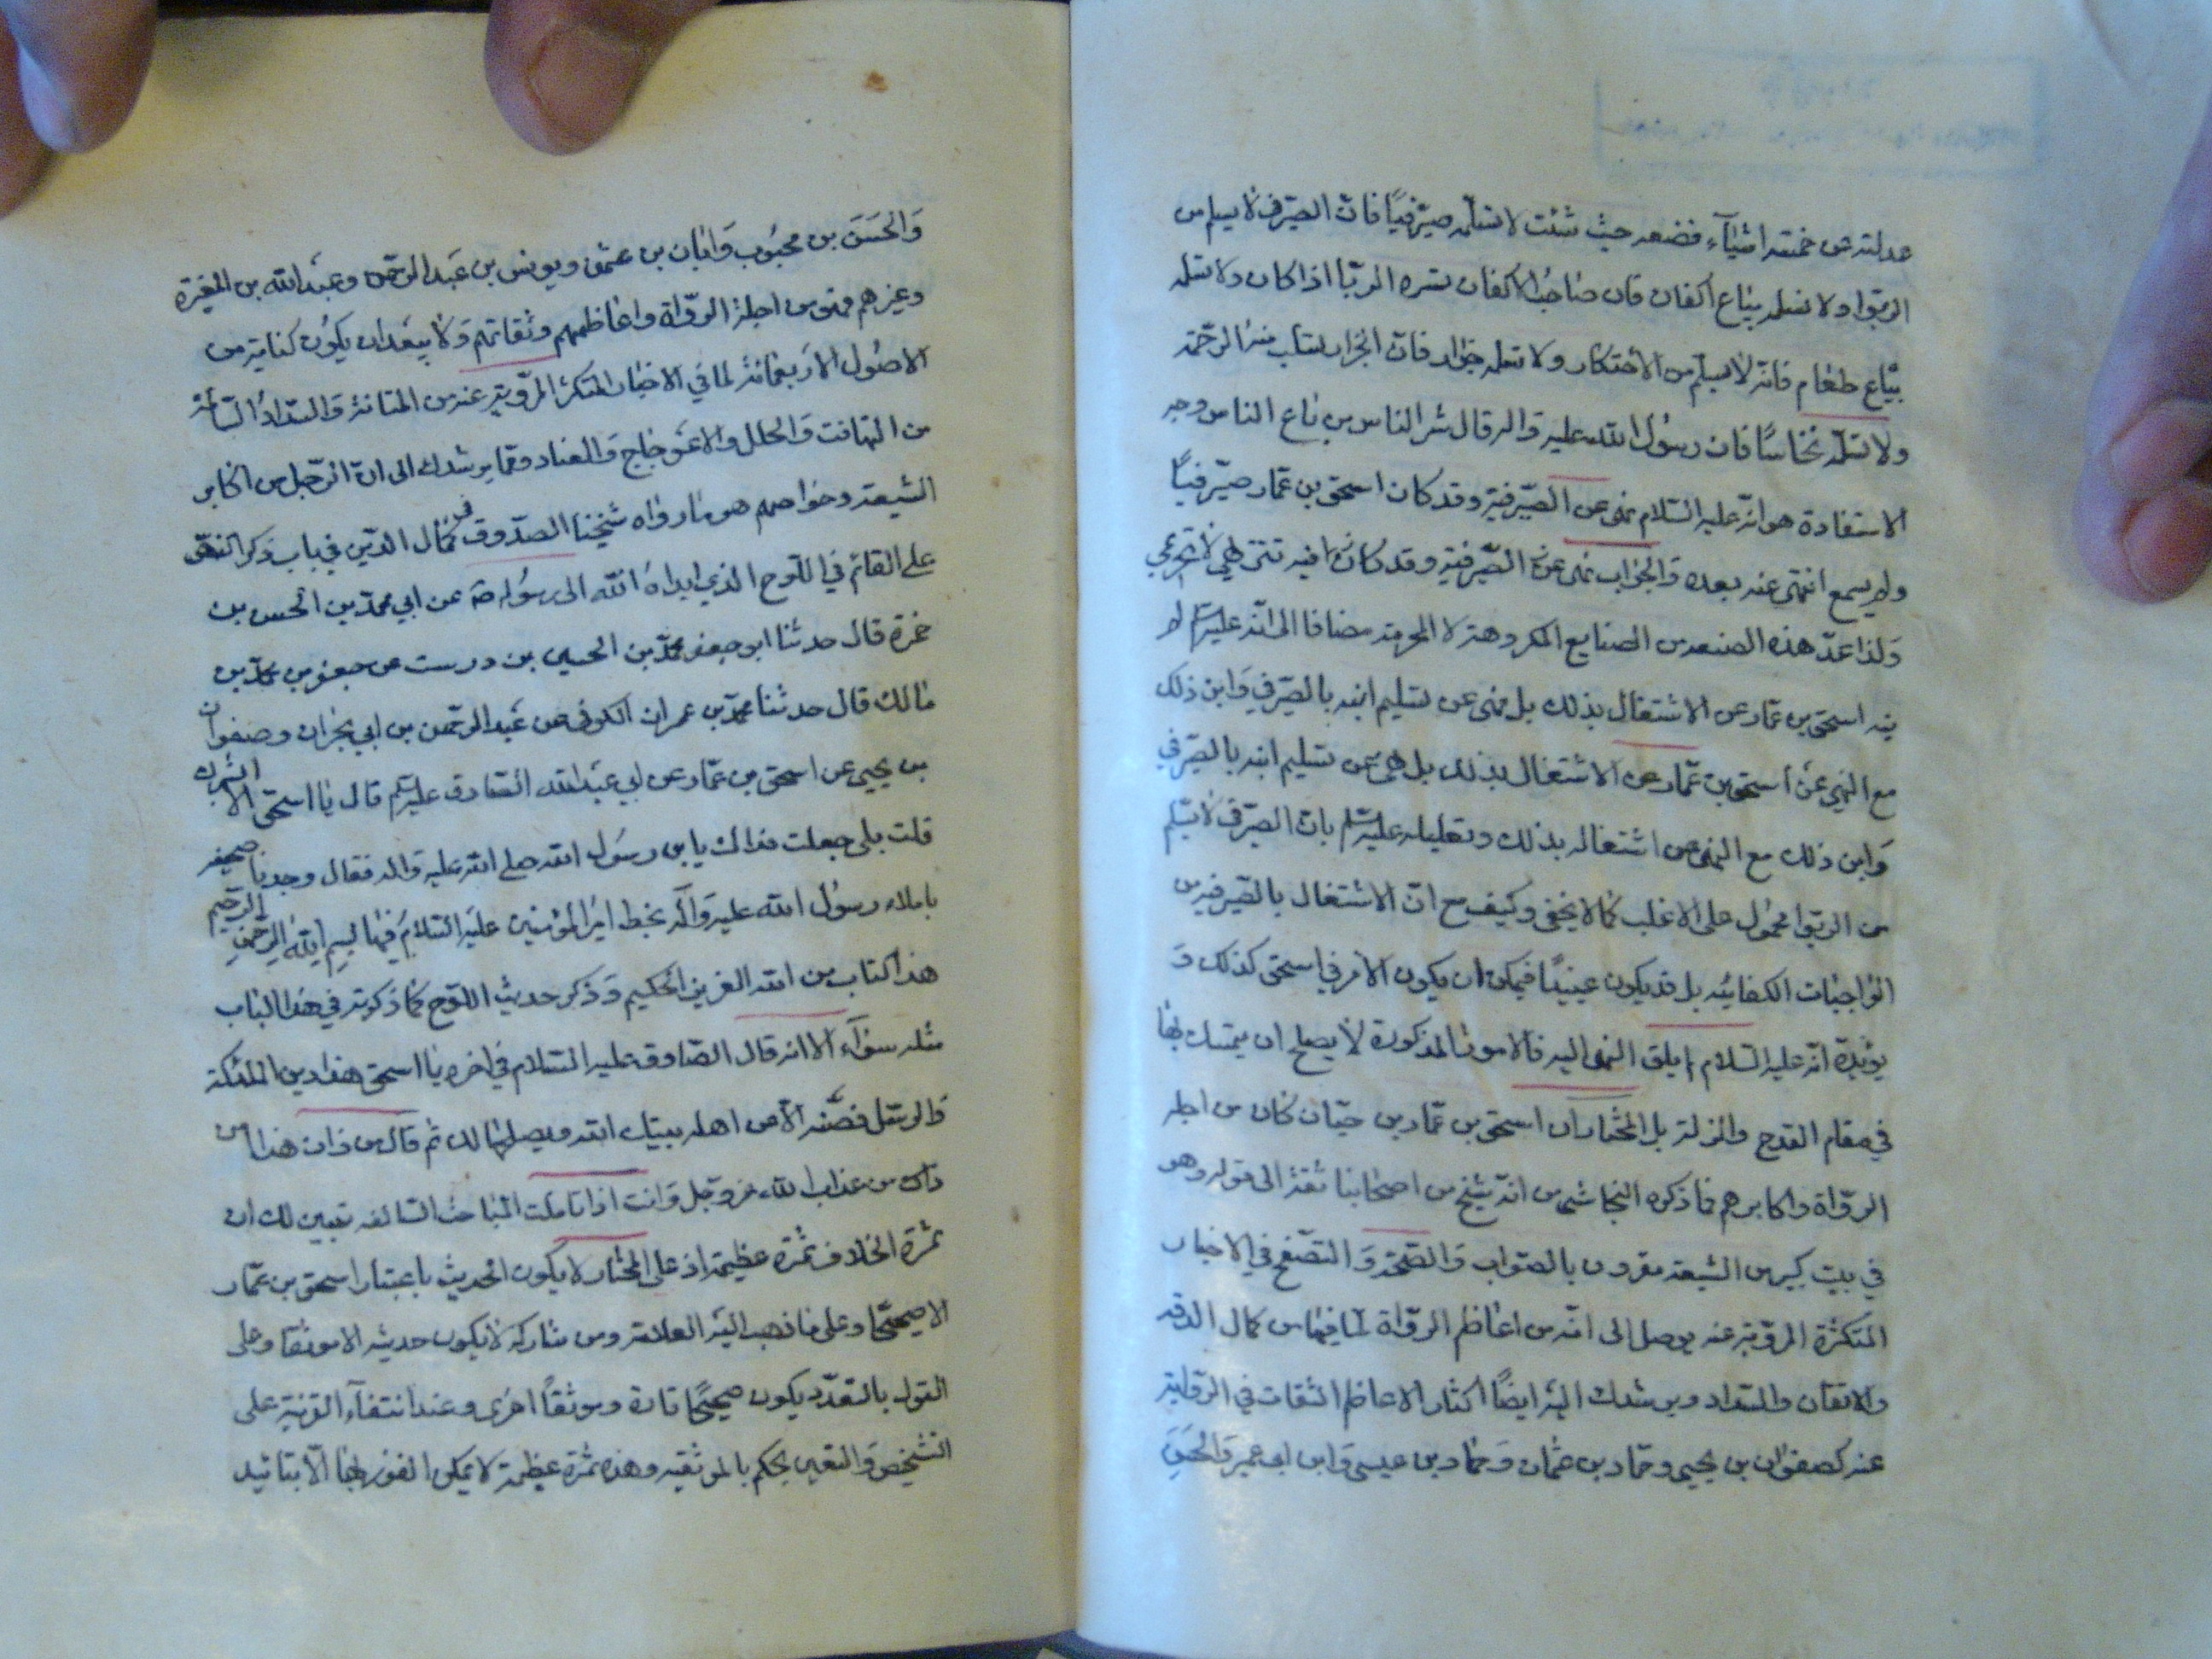 عدلته عن خمسة اشيآء فضعه حيث شئت لا تسلمه صيرفيًا فانّ الصيّرفى لا يسلم من
الربّوا ولا تسلمه بيّاع اكفان فان صاحب الاكفان يسره الوبا اذا كان ولا تسلمه
بيّاع طعام فانه لا يسلم من الاحتكار ولا تسلمه جزّارا فانّ الجزار تسلب منه الرحمة
ولا تسلمه نخاسًا فان رسول الله عليه واله قال شر الناس من باع الناس وجه
الاستفادة هو انّه عليه السّلام نهى عن الصيّرفية وقد كان اسحق بن عمّار صيّرفيًا
ولم يسمع انتهى عنه بعده والجواب نهى عن الصيّرفية وقد كان نهيا فيه تنزيهي لا تحريمي
ولذا عدّ هذه الصنعة من الصنايع المكروهة لا المحرمة مضافا الى انّه عليه السلم لم
ينه اسحق بن عمّار عن الاشتغال بذلك بل نهى عن تسليم ابنه بالصيّرفي واين ذلك
مع النهي عن اسحق بن عمّار عن الاشتغال بذلك بل نهى عن تسليم ابنه بالصيّرفي
واين ذلك مع النهى عن اشتغاله بذلك وتعليله عليه السلم بانّ الصيرّفى لا يسلم
من الربوّا محمول على الاغلب كما لا يخفى وكيف مع انّ الاشتغال بالصّيرفية من
الواجبات الكفائيّه بل قد يكون عينيًا فيمكن ان يكون الامر في اسحق كذلك و
يؤيّده انّه عليه السّلام لم يلق النهى اليه فالامور المذكورة لا يصلح ان يتمسك بها
في مقام القدح والزلة بل المختار ان اسحق بن عمّار بن حيّان كان من اجله
الروّاة واكابرهم فما ذكره النجاشي من انّه شيخ من اصحابنا ثقة الى قوله وهو
في بيت كبير من الشيعة مقرون بالصّواب والصّحّة والتصّفح في الاخبار
المتكثرة المرويّة عنه يوصل الى انّه من اعاظم الروّاة لما فيها من كمال الدقه
والاتقان والسّداد ويرشدك اليه ايضًا اكثار الاعاظم الثقات في الرواية
عنه كصفوان بن يحيى وحماد بن عثمان وحماد بن عيسى وابن ابى عمير والحسن
والحَسَن بن محبوب وابان بن عثمن ويونس بن عبد الرحمن وعبد الله بن المغيرة
وغيرهم ممّن من اجلة الروّاة واعاظمهم وثقاتهم ولا يبعد ان يكون كتابه من
الاصول الاربعمائة لما في الاخبار المتكثرة المروّية عنه من المتانة والسّداد السّالمة
من التهافت والخلل والاعوجاج والعناد وممّا يرشدك الى انّ الرّجل من اكابر
الشيعة وخواصهم هو ما رواه شيخنا الصدّوق في كمال الدّين في باب ذكر النص
على القائم في اللّوح الذي اهداه الله الى رسوله ص عن ابي محمد بن الحسن بن
حمزة قال حدثنا ابو جعفر محمّد بن الحسين بن درست عن جعفر بن محمّد بن
مالك قال حدثنا محمد بن عمران الكوفى عن عبد الرحمن بن ابي نجران وصفوان
بن يحيى عن اسحق بن عمّار عن ابي عبد الله الصّادق عليه السلم قال يا اسحق الا ابشّرك
قلت بلى جعلت فداك يا بن رسول الله صلى الله عليه واله فقال وجدنا صحيفة
باملاء رسول الله عليه وآله بخط امير المؤمنين عليه السّلام فيها بسم الله الرّحمن الرّحيم
هذا كتاب من الله العزيز الحكيم وذكر حديث اللّوح كما ذكرته في هذا الباب
مثله سوآء الا انه قال الصّادق عليه السّلام في اخره يا اسحق هذا دين الملئكة
والرسّل فصنه الّا من اهله يصنك الله ويصلح بالك ثم قال من دان هذا من
ذاك من عذاب الله عزوجل وانت اذا تاملت المباحث السّالفه تبين لك ان
ثمرة الخلاف ثمرة عظيمة اذ على المختار لا يكون الحديث باعتبار اسحق بن عمّار
الا صحيحًا وعلى ما ذهب اليه العلامة ومن شاركه لا يكون حديثه الا موثقا وعلى
القول بالتعدّد يكون صحيحًا تارة وموثقًا اخرى وعند انتفآء القرينة على
التشخيص والتعيين يحكم بالموثقيه وهذه ثمرة عظيمة لا يمكن الفوز بها الّا بتائيد